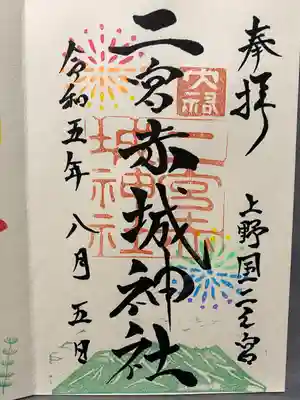 奉拝
上野国二之宮
二宮赤城神社
令和五年八月五日
二宮赤城神社